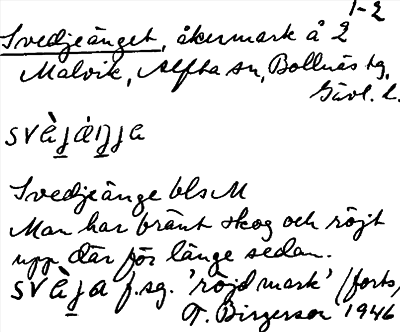 1-2
Svedjeänget, åkermark å 2
Malvik, Alfta sn, Bollnäs tg,
Gävl. l.
svàj̱äŋ̱ja
Svedjeänge bls M
Man har bränt skog och röjt
upp där för länge sedan.
svàj̱a f.sg. 'röjd mark' (forts,
T. Birgerson 1946